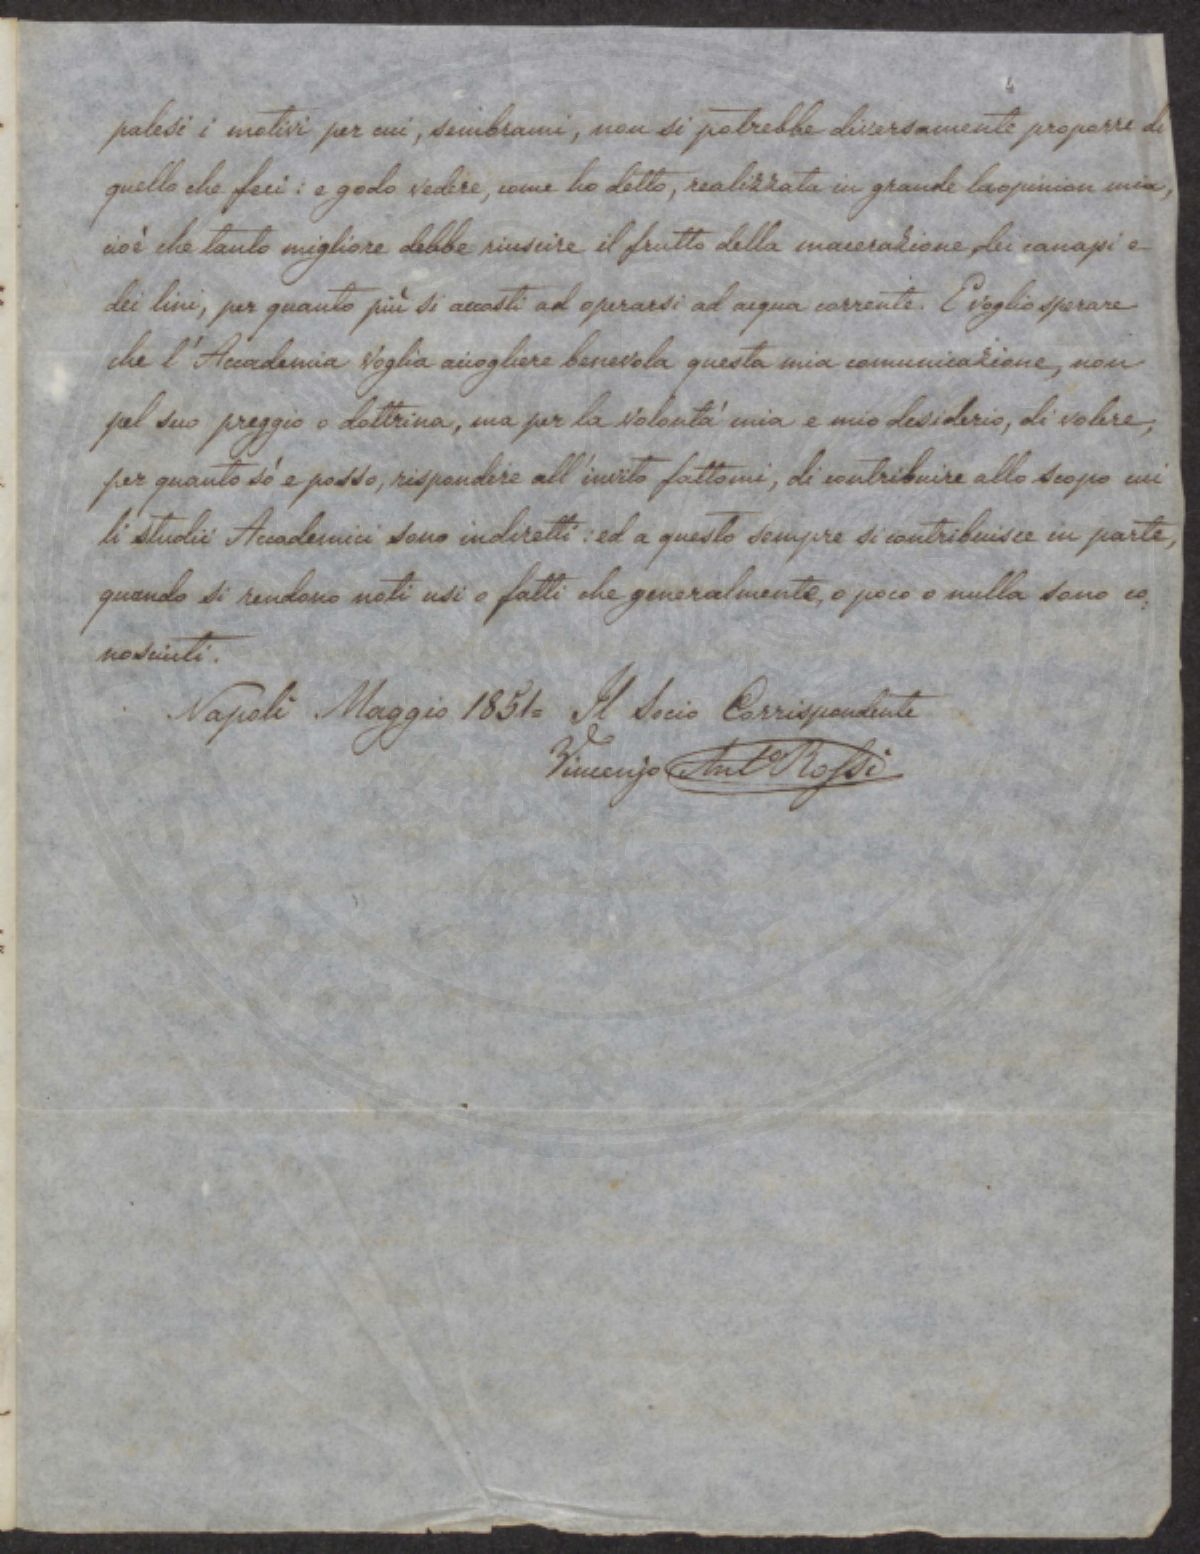 palesi i motivi per cui, sembrami, non si potrebbe diversamente proporre di
quello che feci: e godo vedere, come ho detto, realizzata in grande la opinion mia,
cioè che tanto migliore debbe riuscire il frutto della macerazione dei canapi e
dei lini, per quanto più si accosti ad operarsi ad acqua corrente. E voglio sperare
che l'Accademia voglia accogliere benevola questa mia comunicazione, non
pel suo preggio o dottrina, ma per la volontà mia e mio desiderio, di volere,
per quanto sò e posso, rispondere all'invito fattomi, di contribuire allo scopo cui
li studii Accademici sono indiretti: ed a questo sempre si contribuisce in parte,
quando si rendono noti usi o fatti che generalmente, o poco o nulla sono co=
nosciuti.
Napoli Maggio 1851= Il Socio Corrispondente
Vincenzo Ant.o Rossi